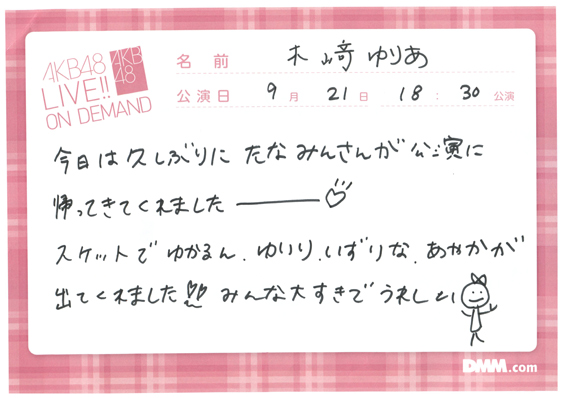 AKB48
LIVE!!
ON DEMAND
AKB
48
名前 木﨑ゆりあ
公演日 9月21日 18:30公演
今日は久しぶりにたなみんさんが公演に
帰ってきてくれました――♡
スケットでゆかるん、ゆいり、いずりな、あやかが
出てくれました みんな大すきでうれしい
DMM.com